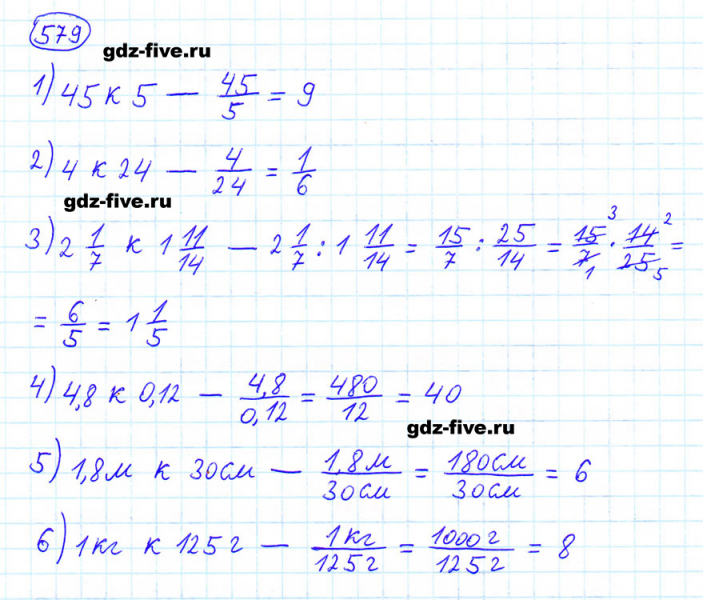 579
gdz-five.ru
1) 45 к 5 — 45/5 = 9
2) 4 к 24 — 4/24 = 1/6
gdz-five.ru
3) 2 1/7 к 1 11/14 — 2 1/7 : 1 11/14 = 15/7 : 25/14 = 15/7 · 14/25 = 3 2 1 5
= 6/5 = 1 1/5
4) 4,8 к 0,12 — 4,8/0,12 = 480/12 = 40
gdz-five.ru
5) 1,8м к 30см — 1,8м/30см = 180см/30см = 6
6) 1кг к 125г — 1кг/125г = 1000г/125г = 8